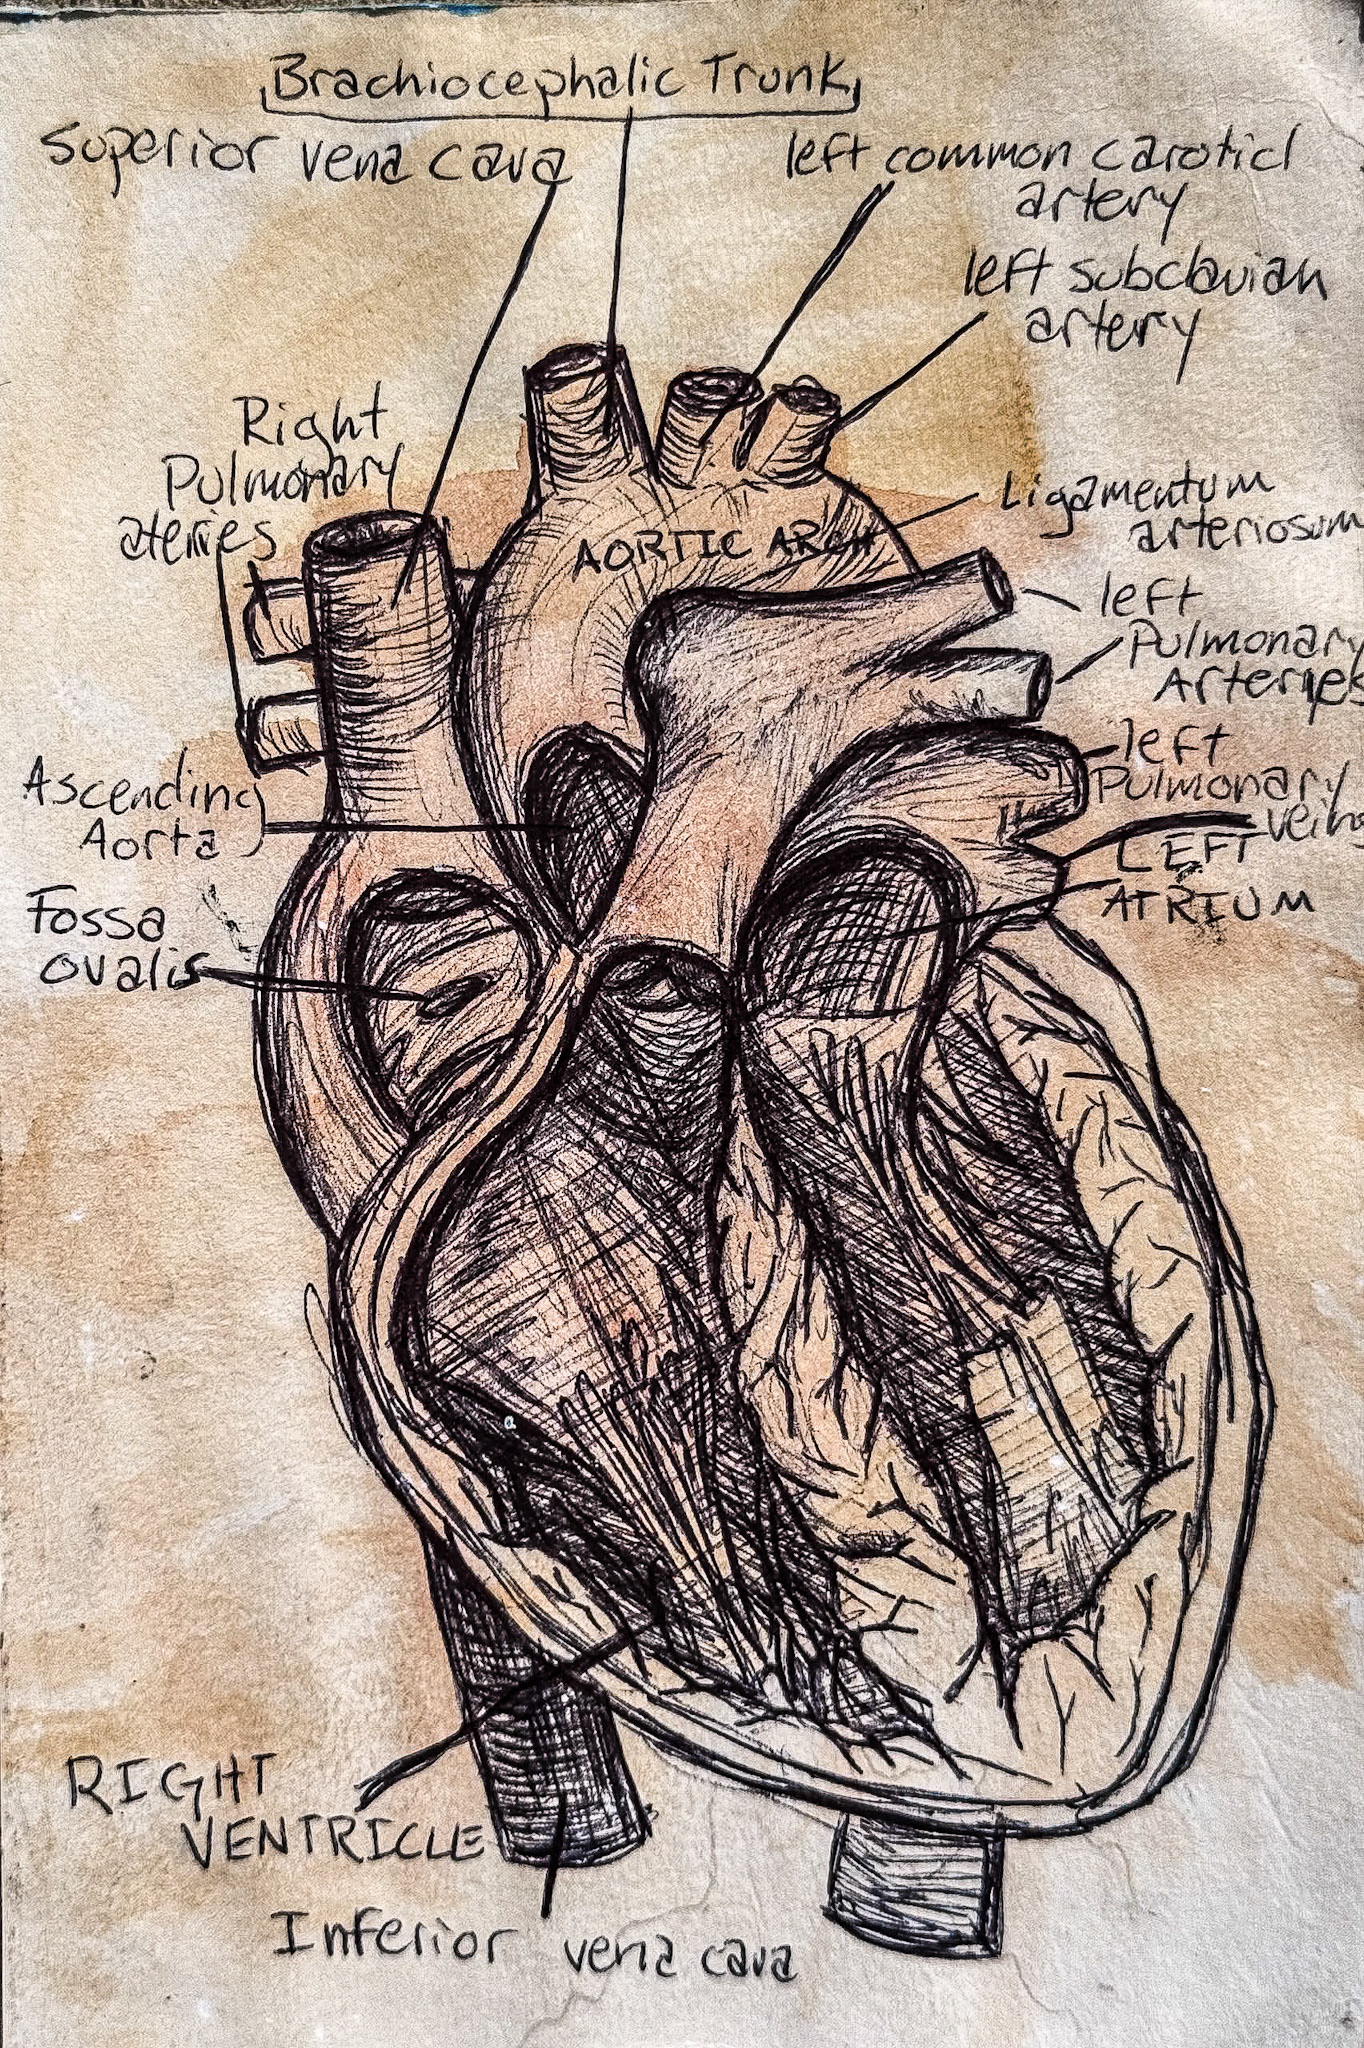 Brachiocephalic Trunk
superior vena cava
left common carotid
artery
left subclavian
artery
Right
Pulmonary
ateries
Ligamentum
arteriosum
AORTIC ARCH
left
Pulmonary
Arteries
left
Pulmonary
veins
LEFT
ATRIUM
Ascending
Aorta
Fossa
ovalis
RIGHT
VENTRICLE
Inferior vena cava